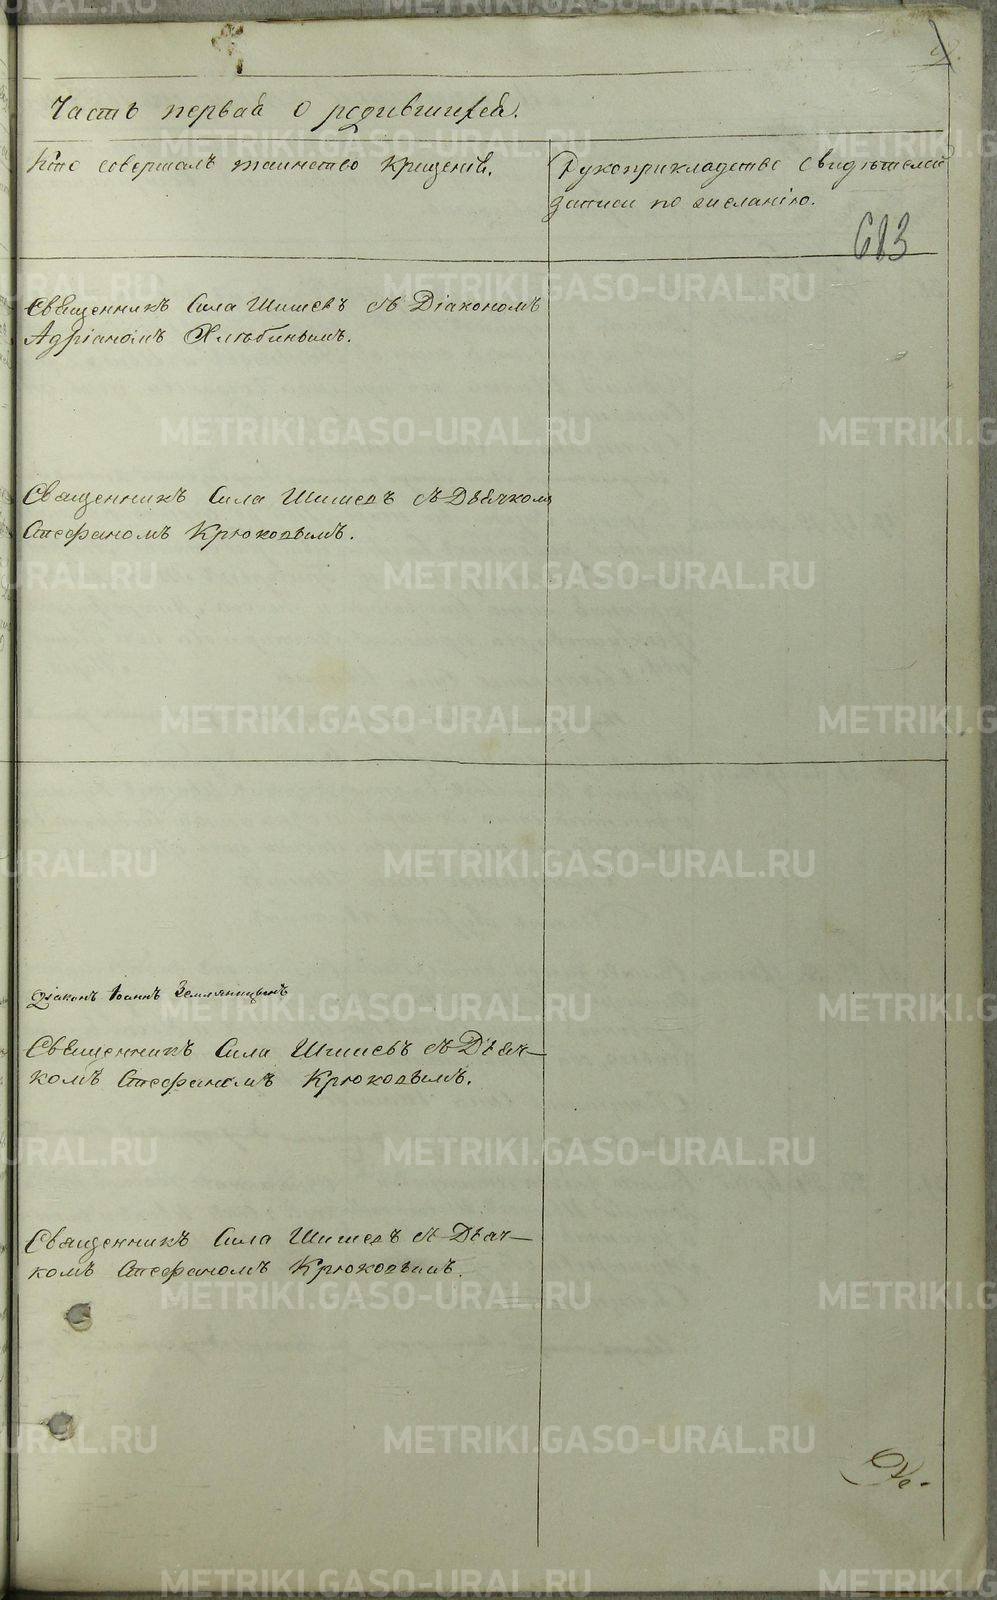 Часть первая о родившихся.
Кто совершалъ таинство крещенія.
Рукоприкладство свидѣтелей
записи по желанію.
683
Священникъ Сила Шишевъ съ Діакономъ
Адріаномъ Хлюбинымъ.
Священникъ Сила Шишевъ съ Дьячкомъ
Стефаномъ Крюковымъ.
Діаконъ Іоаннъ Земляницынъ
Священникъ Сила Шишевъ съ Дьяч-
комъ Стефаномъ Крюковымъ.
Священникъ Сила Шишевъ съ Дьяч-
комъ Стефаномъ Крюковымъ.
METRIKI.GASO-URAL.RU